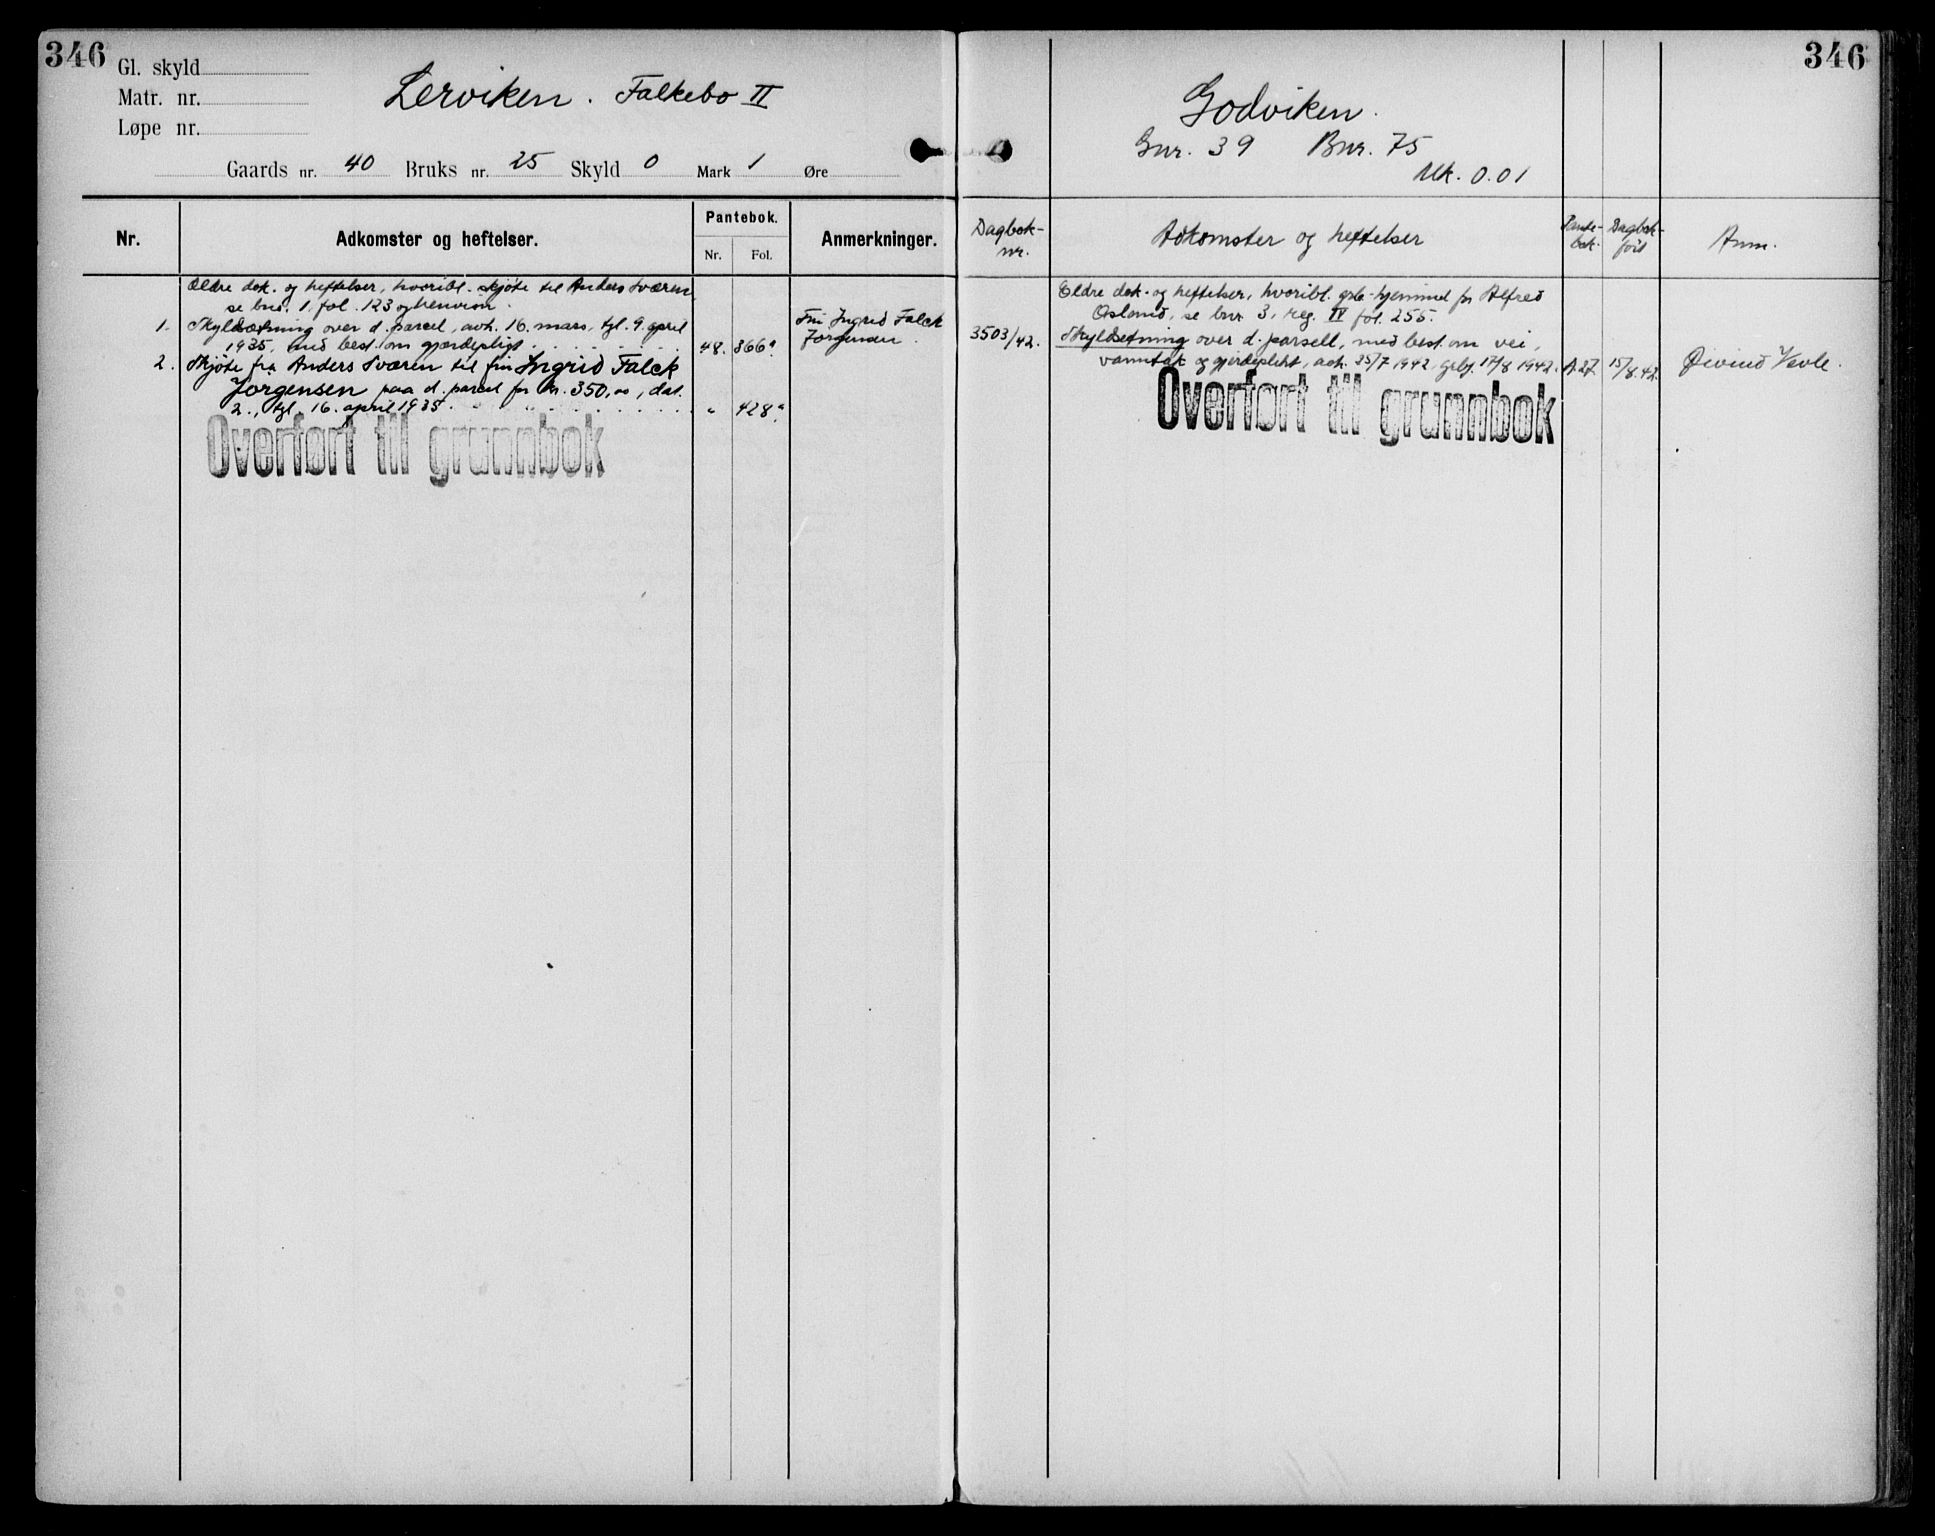 346
Gl. skyld
Matr. nr.
Løpe nr.
Lerviken. Falkebo II
Gaards nr. 40 Bruks nr. 25 Skyld 0 Mark 1 Øre
Nr.
Adkomster og heftelser.
Pantebok.
Nr. Fol.
Anmerkninger.
Ældre dok. og heftelser, hvoribl. skjøte til Anders Sværen
se bnr. 1. fol. 123 og henvisn.
1. Skyldsætning over d. parcel, avh. 16. mars, tgl. 9. april
1935, med best. om gjærdepligt. 48. 366a.
Fru Ingrid Falck
Jørgensen.
2. Skjøte fra Anders Sværen til fru Ingrid Falck
Jørgensen paa d. parcel for kr. 350,00, dat.
2., tgl. 16. april 1935. " 428a.
Overført til grunnbok
346
Godviken.
Gnr. 39 Bnr. 75
Mk. 0.01
Dagbok-
nr.
Adkomster og heftelser
Pante-
bok.
Dagbok-
ført
Anm.
Eldre dok. og heftelser, hvoribl. grb-hjemmel for Alfred
Osland, se bnr 3, reg. IV fol. 255.
3503/42. Skyldsetning over d. parsell, med best. om vei,
vanntak og gjerdeplikt, avh. 25/7 1942, grbg. 17/8 1942. A 27. 15/8.42. Øivind Vevle.
Overført til grunnbok